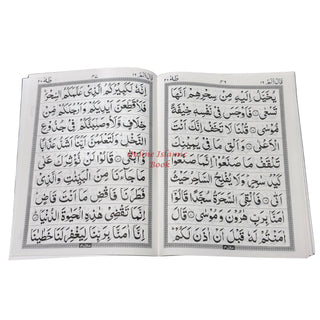 قال الم ١٦
٣٦٩
طٰهٰ ٢٠
يُخَيَّلُ اِلَيْهِ مِنْ سِحْرِهِمْ اَنَّهَا
تَسْعٰى ۝ فَاَوْجَسَ فِيْ نَفْسِهٖ خِيْفَةً
مُّوْسٰى ۝ قُلْنَا لَا تَخَفْ اِنَّكَ اَنْتَ
الْاَعْلٰى ۝ وَاَلْقِ مَا فِيْ يَمِيْنِكَ
تَلْقَفْ مَا صَنَعُوْا ؕ اِنَّمَا صَنَعُوْا
كَيْدُ سٰحِرٍ ؕ وَلَا يُفْلِحُ السَّاحِرُ حَيْثُ
اَتٰى ۝ فَاُلْقِيَ السَّحَرَةُ سُجَّدًا قَالُوْۤا
اٰمَنَّا بِرَبِّ هٰرُوْنَ وَمُوْسٰى ۝ قَالَ
اٰمَنْتُمْ لَهٗ قَبْلَ اَنْ اٰذَنَ لَكُمْ ؕ
قال الم ١٦
طٰهٰ ٢٠
اِنَّهٗ لَكَبِيْرُكُمُ الَّذِيْ عَلَّمَكُمُ السِّحْرَ ۚ
فَلَاُقَطِّعَنَّ اَيْدِيَكُمْ وَاَرْجُلَكُمْ مِّنْ
خِلَافٍ وَّلَاُوصَلِّبَنَّكُمْ فِيْ جُذُوْعِ
النَّخْلِ ؗ وَلَتَعْلَمُنَّ اَيُّنَاۤ اَشَدُّ عَذَابًا
وَّاَبْقٰى ۝ قَالُوْا لَنْ نُّؤْثِرَكَ عَلٰى
مَا جَآءَنَا مِنَ الْبَيِّنٰتِ وَالَّذِيْ
فَطَرَنَا فَاقْضِ مَاۤ اَنْتَ قَاضٍ ؕ
اِنَّمَا تَقْضِيْ هٰذِهِ الْحَيٰوةَ الدُّنْيَا ۝
اِنَّاۤ اٰمَنَّا بِرَبِّنَا لِيَغْفِرَ لَنَا خَطٰيٰنَا
Islamic
Book